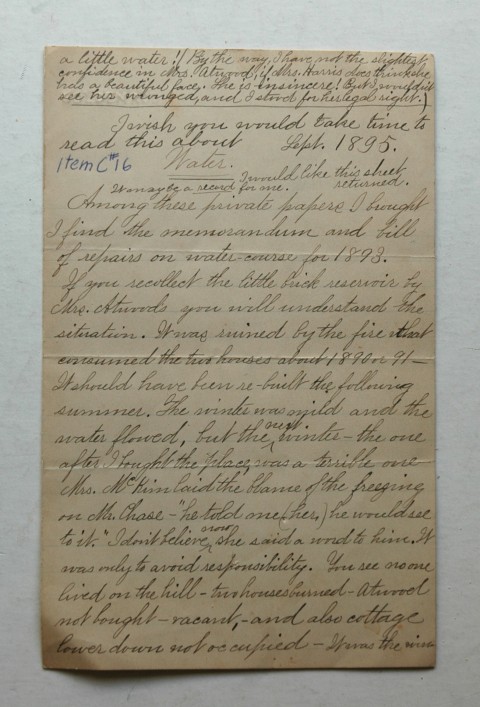 a little water!! (By the way, I have not the slightest
confidence in Mrs. Atwood, if Mrs. Harris does think she
has a beautiful face. She is insincere! But I wouldn't
see her wronged, and I stood for her legal right.)
I wish you would take time to
read this about Sept. 1895.
Item C#16 Water.
It may be a record for me. I would like this sheet returned.
Among these private papers I bought
I find the memorandum and bill
of repairs on water-course for 1893.
If you recollect the little brick reservoir by
Mrs. Atwoods you will understand the
situation. It was ruined by the fire that
consumed the two houses about 1890 or 91—
It should have been re-built the following
summer. The winter was mild and the
water flowed, but the next winter – the one
after I bought the place, was a terrible one
Mrs. McKim laid the blame of the freezing
on Mr. Chase – "he told me (her,) he would see
to it." I don't believe now she said a word to him. It
was only to avoid responsibility. You see no one
lived on the hill – two houses burned – Atwood
not bought – vacant, – and also cottage
lower down not occupied – It was the